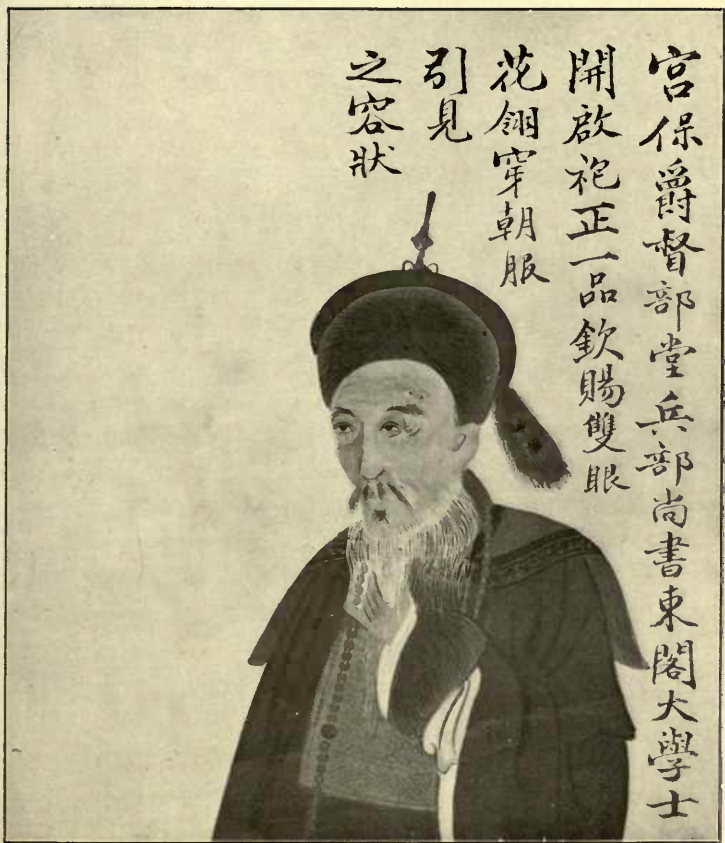 宮保爵督部堂兵部尚書東閣大學士
開啟袍正一品欽賜雙眼
花翎穿朝服
引見
之容狀